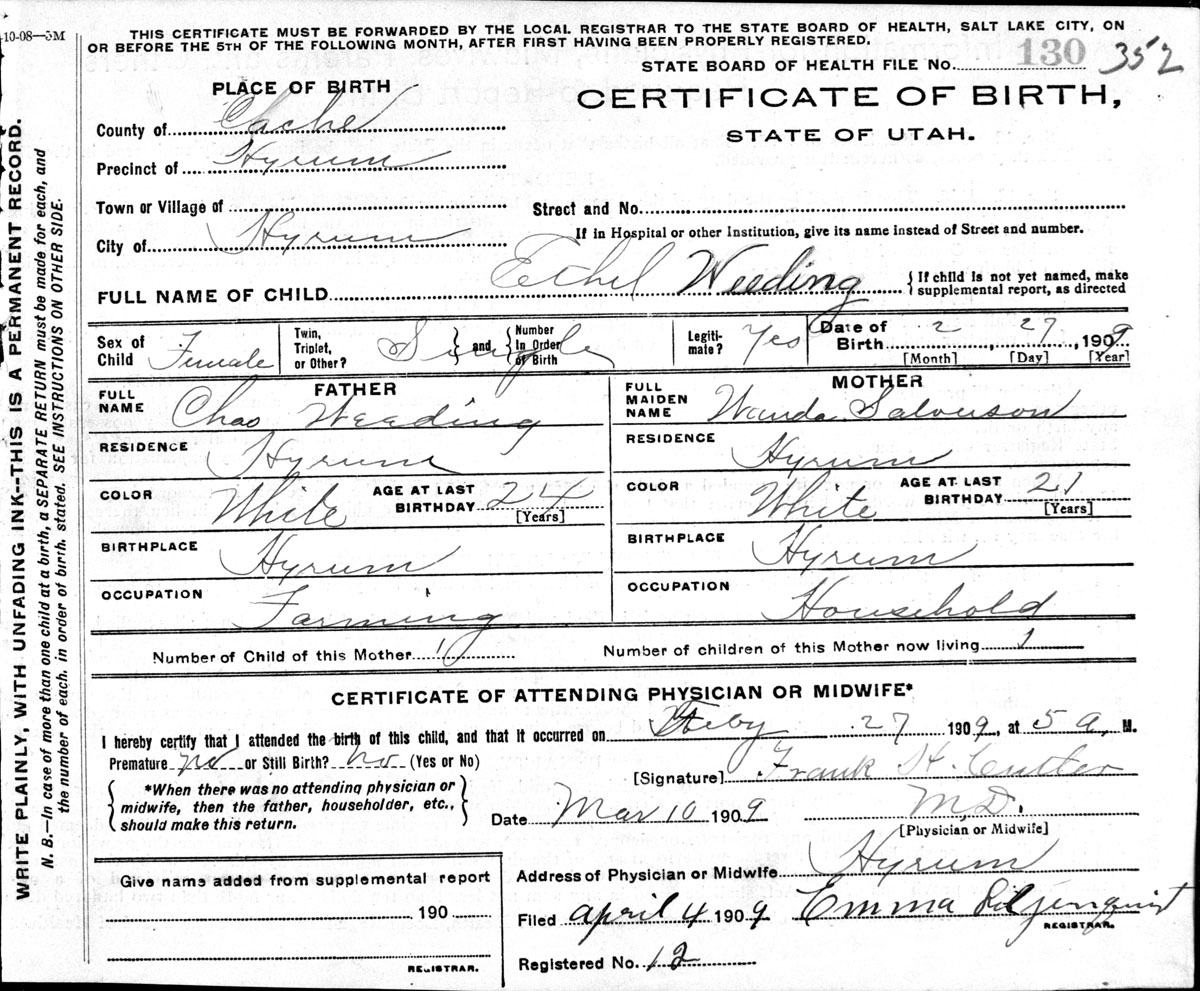 10-08—5M
THIS CERTIFICATE MUST BE FORWARDED BY THE LOCAL REGISTRAR TO THE STATE BOARD OF HEALTH, SALT LAKE CITY, ON
OR BEFORE THE 5TH OF THE FOLLOWING MONTH, AFTER FIRST HAVING BEEN PROPERLY REGISTERED.
STATE BOARD OF HEALTH FILE No. 130 352
PLACE OF BIRTH
CERTIFICATE OF BIRTH,
STATE OF UTAH.
County of Cache
Precinct of Hyrum
Town or Village of
Street and No.
City of Hyrum
If in Hospital or other Institution, give its name instead of Street and number.
FULL NAME OF CHILD Ethel Weeding {If child is not yet named, make
supplemental report, as directed
Sex of Child Female
Twin, Triplet, or Other? Single } and { Number In Order of Birth
Legiti-mate? Yes
Date of Birth 2, 27, 1909
[Month] [Day] [Year]
FATHER
FULL NAME Chas Weeding
RESIDENCE Hyrum
COLOR White AGE AT LAST BIRTHDAY 24 [Years]
BIRTHPLACE Hyrum
OCCUPATION Farming
MOTHER
FULL MAIDEN NAME Wanda Salverson
RESIDENCE Hyrum
COLOR White AGE AT LAST BIRTHDAY 21 [Years]
BIRTHPLACE Hyrum
OCCUPATION Household
Number of Child of this Mother 1 Number of children of this Mother now living 1
CERTIFICATE OF ATTENDING PHYSICIAN OR MIDWIFE*
I hereby certify that I attended the birth of this child, and that it occurred on Feby 27 1909, at 5 a, M.
Premature no or Still Birth? no (Yes or No)
[Signature] Frank H. Cutler
*When there was no attending physician or
midwife, then the father, householder, etc.,
should make this return.
Date Mar 10 1909 M.D.
[Physician or Midwife]
Address of Physician or Midwife Hyrum
Give name added from supplemental report
190
REGISTRAR.
Filed April 4 1909 Emma Liljenquist
REGISTRAR.
Registered No. 12
WRITE PLAINLY, WITH UNFADING INK--THIS IS A PERMANENT RECORD.
N. B.—In case of more than one child at a birth, a SEPARATE RETURN must be made for each, and
the number of each, in order of birth, stated. SEE INSTRUCTIONS ON OTHER SIDE.